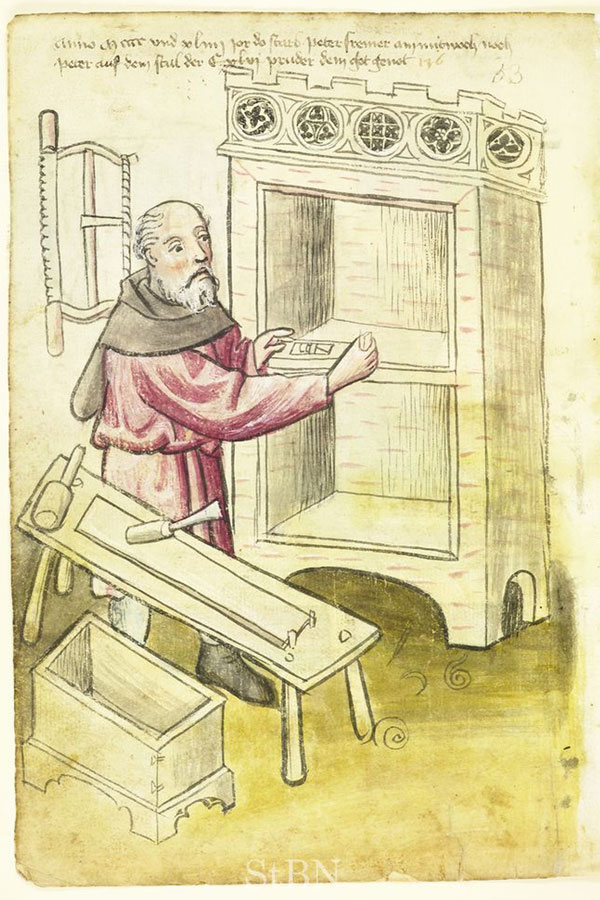 Anno Mcccc und xliiij jor do starb Peter screiner am mitwoch noch
Peter auf dem stul der C xlvi pruder dem got genot 146
53
StBN